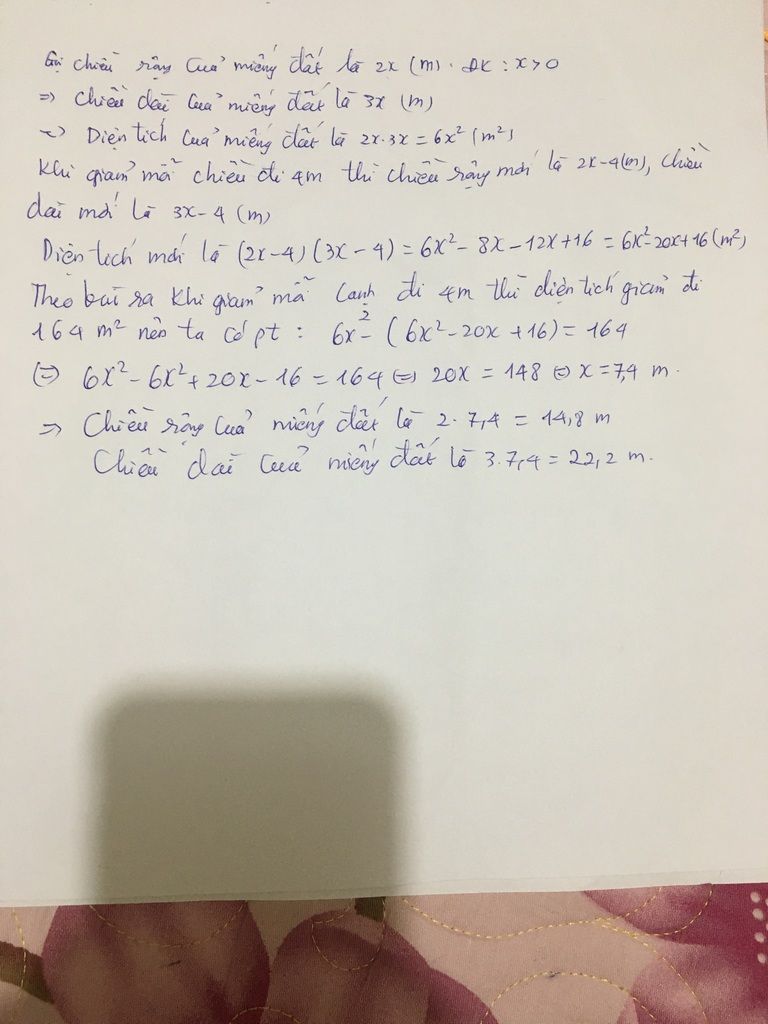 Gọi chiều rộng của miếng đất là 2x (m). ĐK : x > 0
=> chiều dài của miếng đất là 3x (m)
=> Diện tích của miếng đất là 2x.3x = 6x² (m²)
Khi giảm mỗi chiều đi 4m thì chiều rộng mới là 2x-4(m), chiều
dài mới là 3x-4 (m)
Diện tích mới là (2x-4) (3x-4) = 6x² - 8x - 12x + 16 = 6x²-20x+16 (m²)
Theo bài ra khi giảm mỗi cạnh đi 4m thì diện tích giảm đi
164 m² nên ta có pt : 6x² - (6x² - 20x + 16) = 164
(=) 6x² - 6x² + 20x - 16 = 164 (=) 20x = 148 (=) x = 7,4 m.
=> Chiều rộng của miếng đất là 2. 7,4 = 14,8 m
Chiều dài của miếng đất là 3.7,4 = 22,2 m.